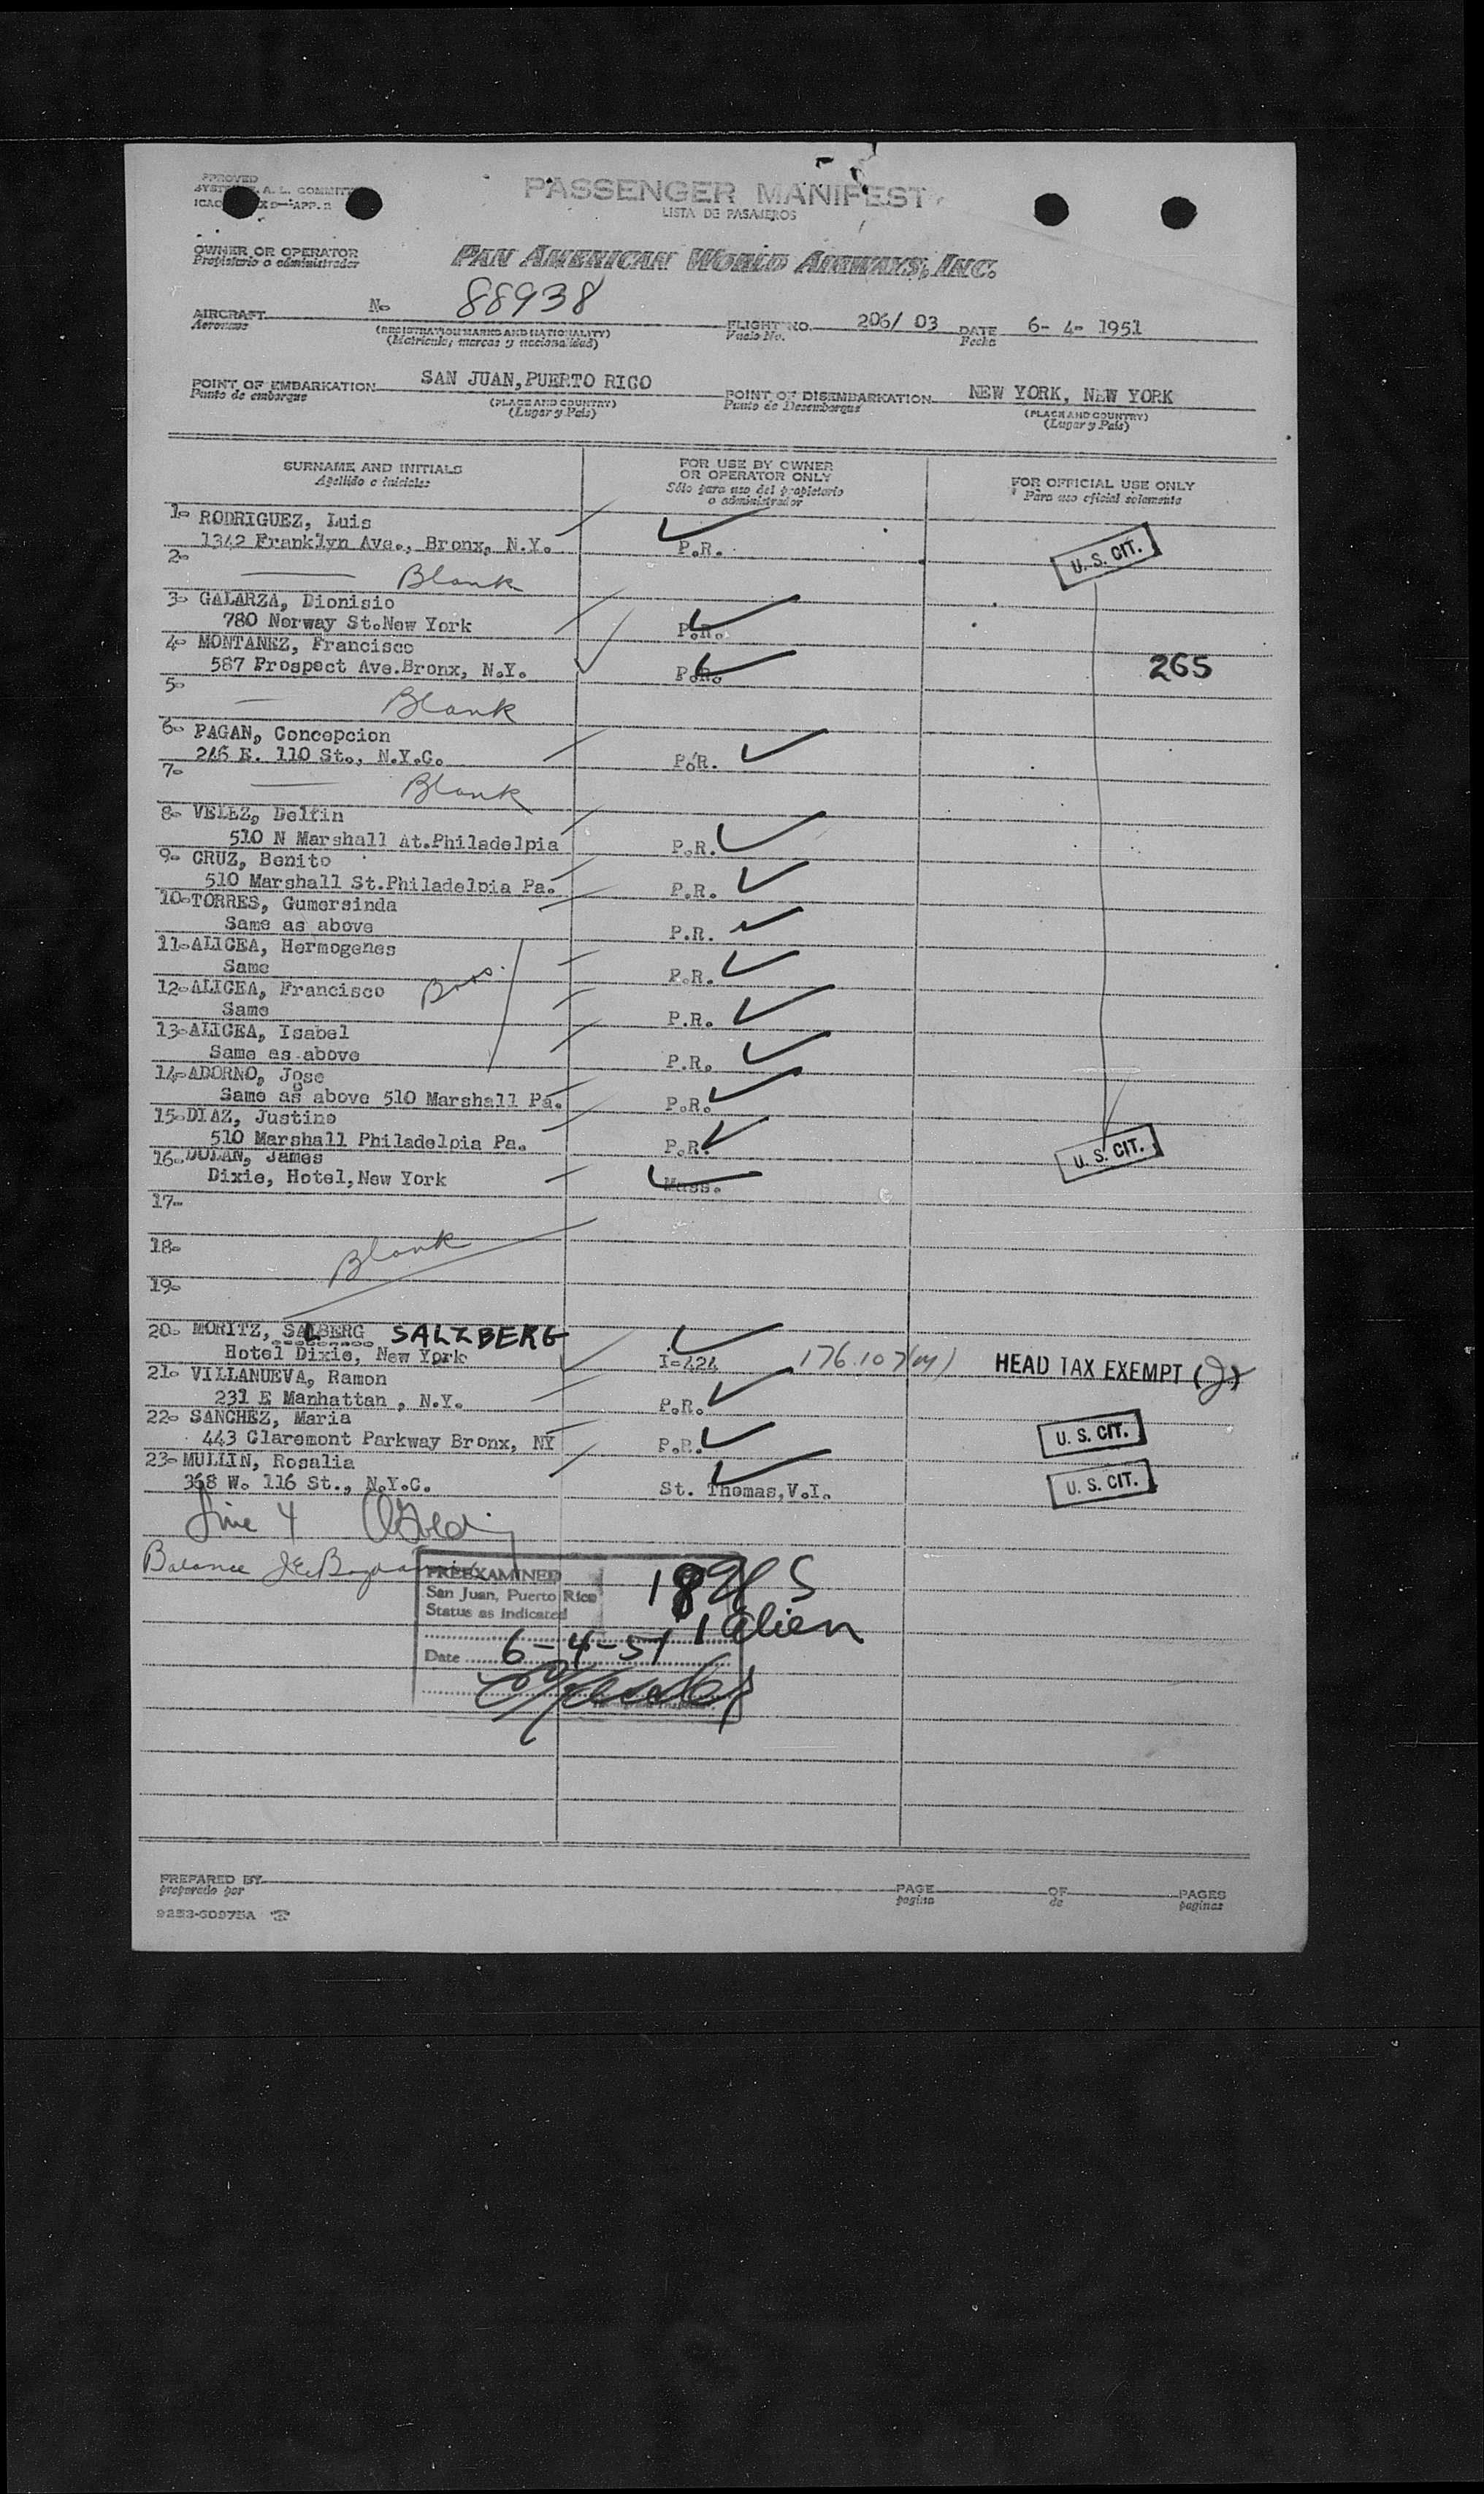 PASSENGER MANIFEST
LISTA DE PASAJEROS
OWNER OR OPERATOR
Propietario o administrador
PAN AMERICAN WORLD AIRWAYS, INC.
AIRCRAFT No 88938 FLIGHT NO. 206/ 03 DATE 6- 4- 1951
Aeronave (REGISTRATION MARKS AND NATIONALITY) Vuelo No. Fecha
(Matricula, marcas y nacionalidad)
POINT OF EMBARKATION SAN JUAN, PUERTO RICO POINT OF DISEMBARKATION NEW YORK, NEW YORK
Punto de embarque (PLACE AND COUNTRY) Punto de Desembarque (PLACE AND COUNTRY)
(Lugar y Pais) (Lugar y Pais)
SURNAME AND INITIALS FOR USE BY OWNER OR OPERATOR ONLY FOR OFFICIAL USE ONLY
Apellido e iniciales Sólo para uso del propietario o administrador Para uso oficial solamente
1- RODRIGUEZ, Luis
1342 Franklyn Ave., Bronx, N.Y. P.R. U. S. CIT.
2- Blank
3- GALARZA, Dionisio
780 Norway St.New York P.R.
4- MONTANEZ, Francisco
587 Prospect Ave.Bronx, N.Y. P.R. 265
5- Blank
6- PAGAN, Concepcion
246 E. 110 St., N.Y.C. P.R.
7- Blank
8- VELEZ, Delfin
510 N Marshall At.Philadelpia P.R.
9- CRUZ, Benito
510 Marshall St.Philadelpia Pa. P.R.
10-TORRES, Gumersinda
Same as above P.R.
11-ALICEA, Hermogenes
Same P.R.
12-ALICEA, Francisco Bros.
Same P.R.
13-ALICEA, Isabel
Same as above P.R.
14-ADORNO, Jose
Same as above 510 Marshall Pa. P.R.
15-DIAZ, Justino
510 Marshall Philadelpia Pa. P.R.
16-DOLAN, James U. S. CIT.
Dixie, Hotel, New York Mass.
17-
18- Blank
19-
20- MORITZ, SALBERG SALZBERG
Hotel Dixie, New York I-424 176.107(m) HEAD TAX EXEMPT (J)
21- VILLANUEVA, Ramon
231 E Manhattan , N.Y. P.R.
22- SANCHEZ, Maria
443 Claremont Parkway Bronx, NY P.R. U. S. CIT.
23- MULLIN, Rosalia
368 W. 116 St., N.Y.C. St. Thomas, V.I. U. S. CIT.
Line 4
Balance
PREEXAMINED
San Juan, Puerto Rico
Status as Indicated
1 Alien
Date 6-4-51
Immigrant Inspector.
PREPARED BY PAGE OF PAGES
preparado por pagina de paginas
9253-60975A